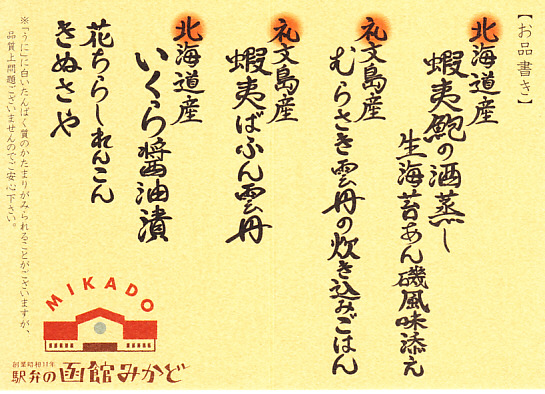 【お品書き】
北海道産
蝦夷鮑の酒蒸し
生海苔あん磯風味添え
礼文島産
むらさき雲丹の炊き込みごはん
礼文島産
蝦夷ばふん雲丹
北海道産
いくら醤油漬
花ちらしれんこん
きぬさや
※「うに」に白いたんぱく質のかたまりがみられることがございますが、
品質上問題ございませんのでご安心下さい。
MIKADO
創業昭和11年
駅弁の函館みかど